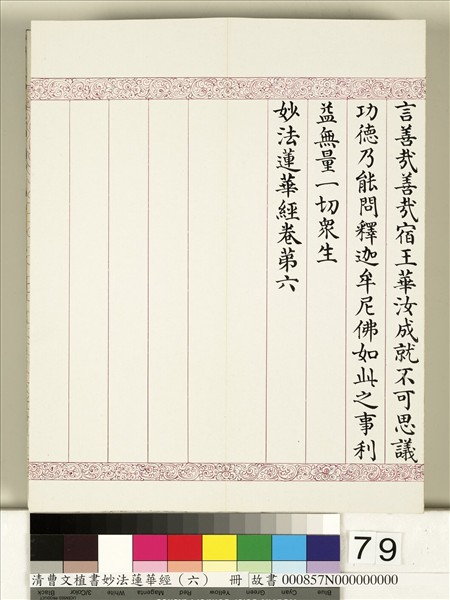 言善哉善哉宿王華汝成就不可思議
功德乃能問釋迦牟尼佛如此之事利
益無量一切眾生
妙法蓮華經卷第六
79
清曹文植書妙法蓮華經（六） 冊 故書 000857N000000000
Black 3/Color White Magenta Red Yellow Green Cyan Blue